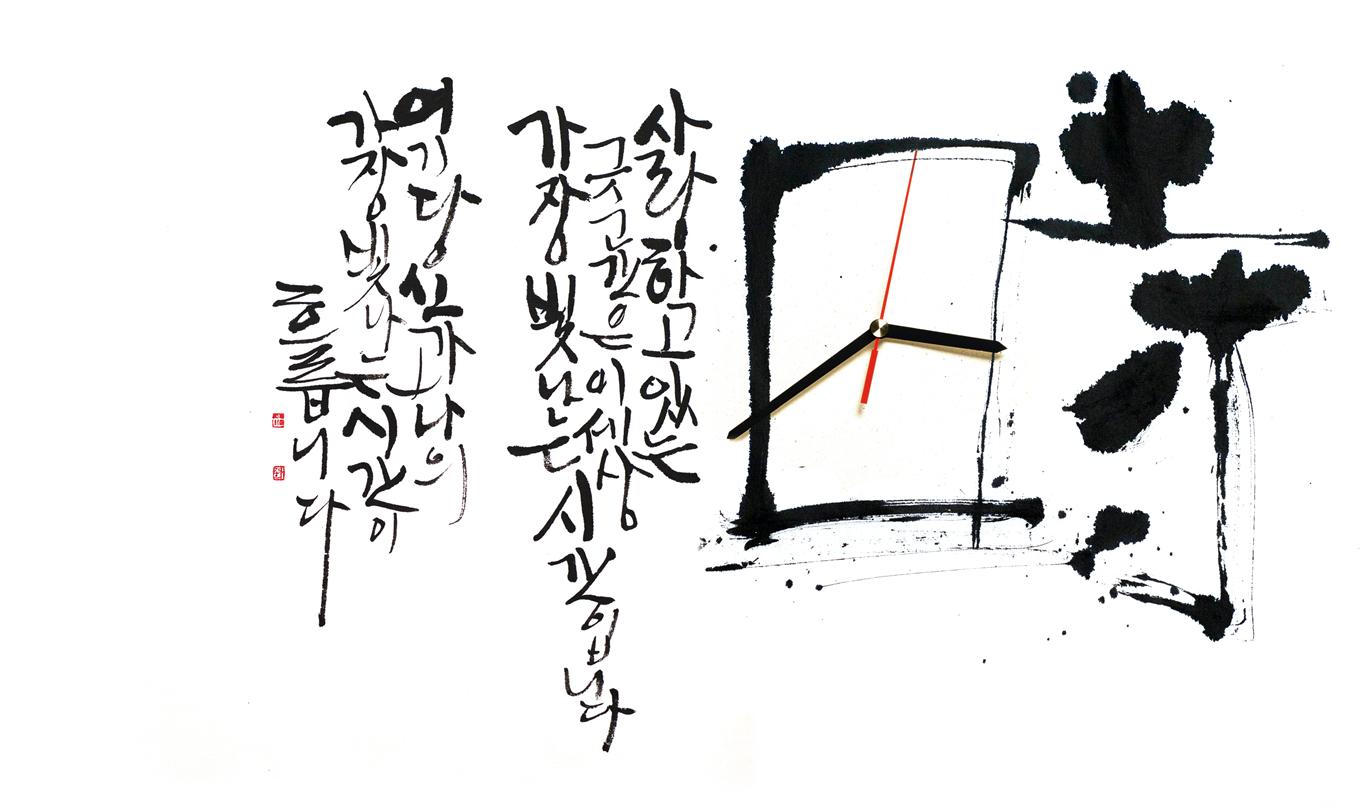 時
사랑하고 있는
이 세상
가장 빛나는 시간입니다
여기 당신과 나의
가장 빛나는 시간이
흐릅니다